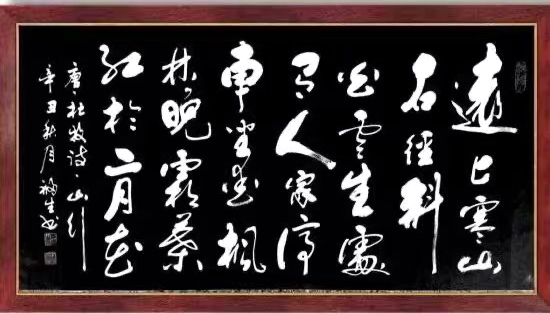 遠上寒山
石徑斜
白雲生處
有人家停
車坐愛楓
林晚霜葉
紅於二月花
唐杜牧诗·山行
辛丑秋月福生书